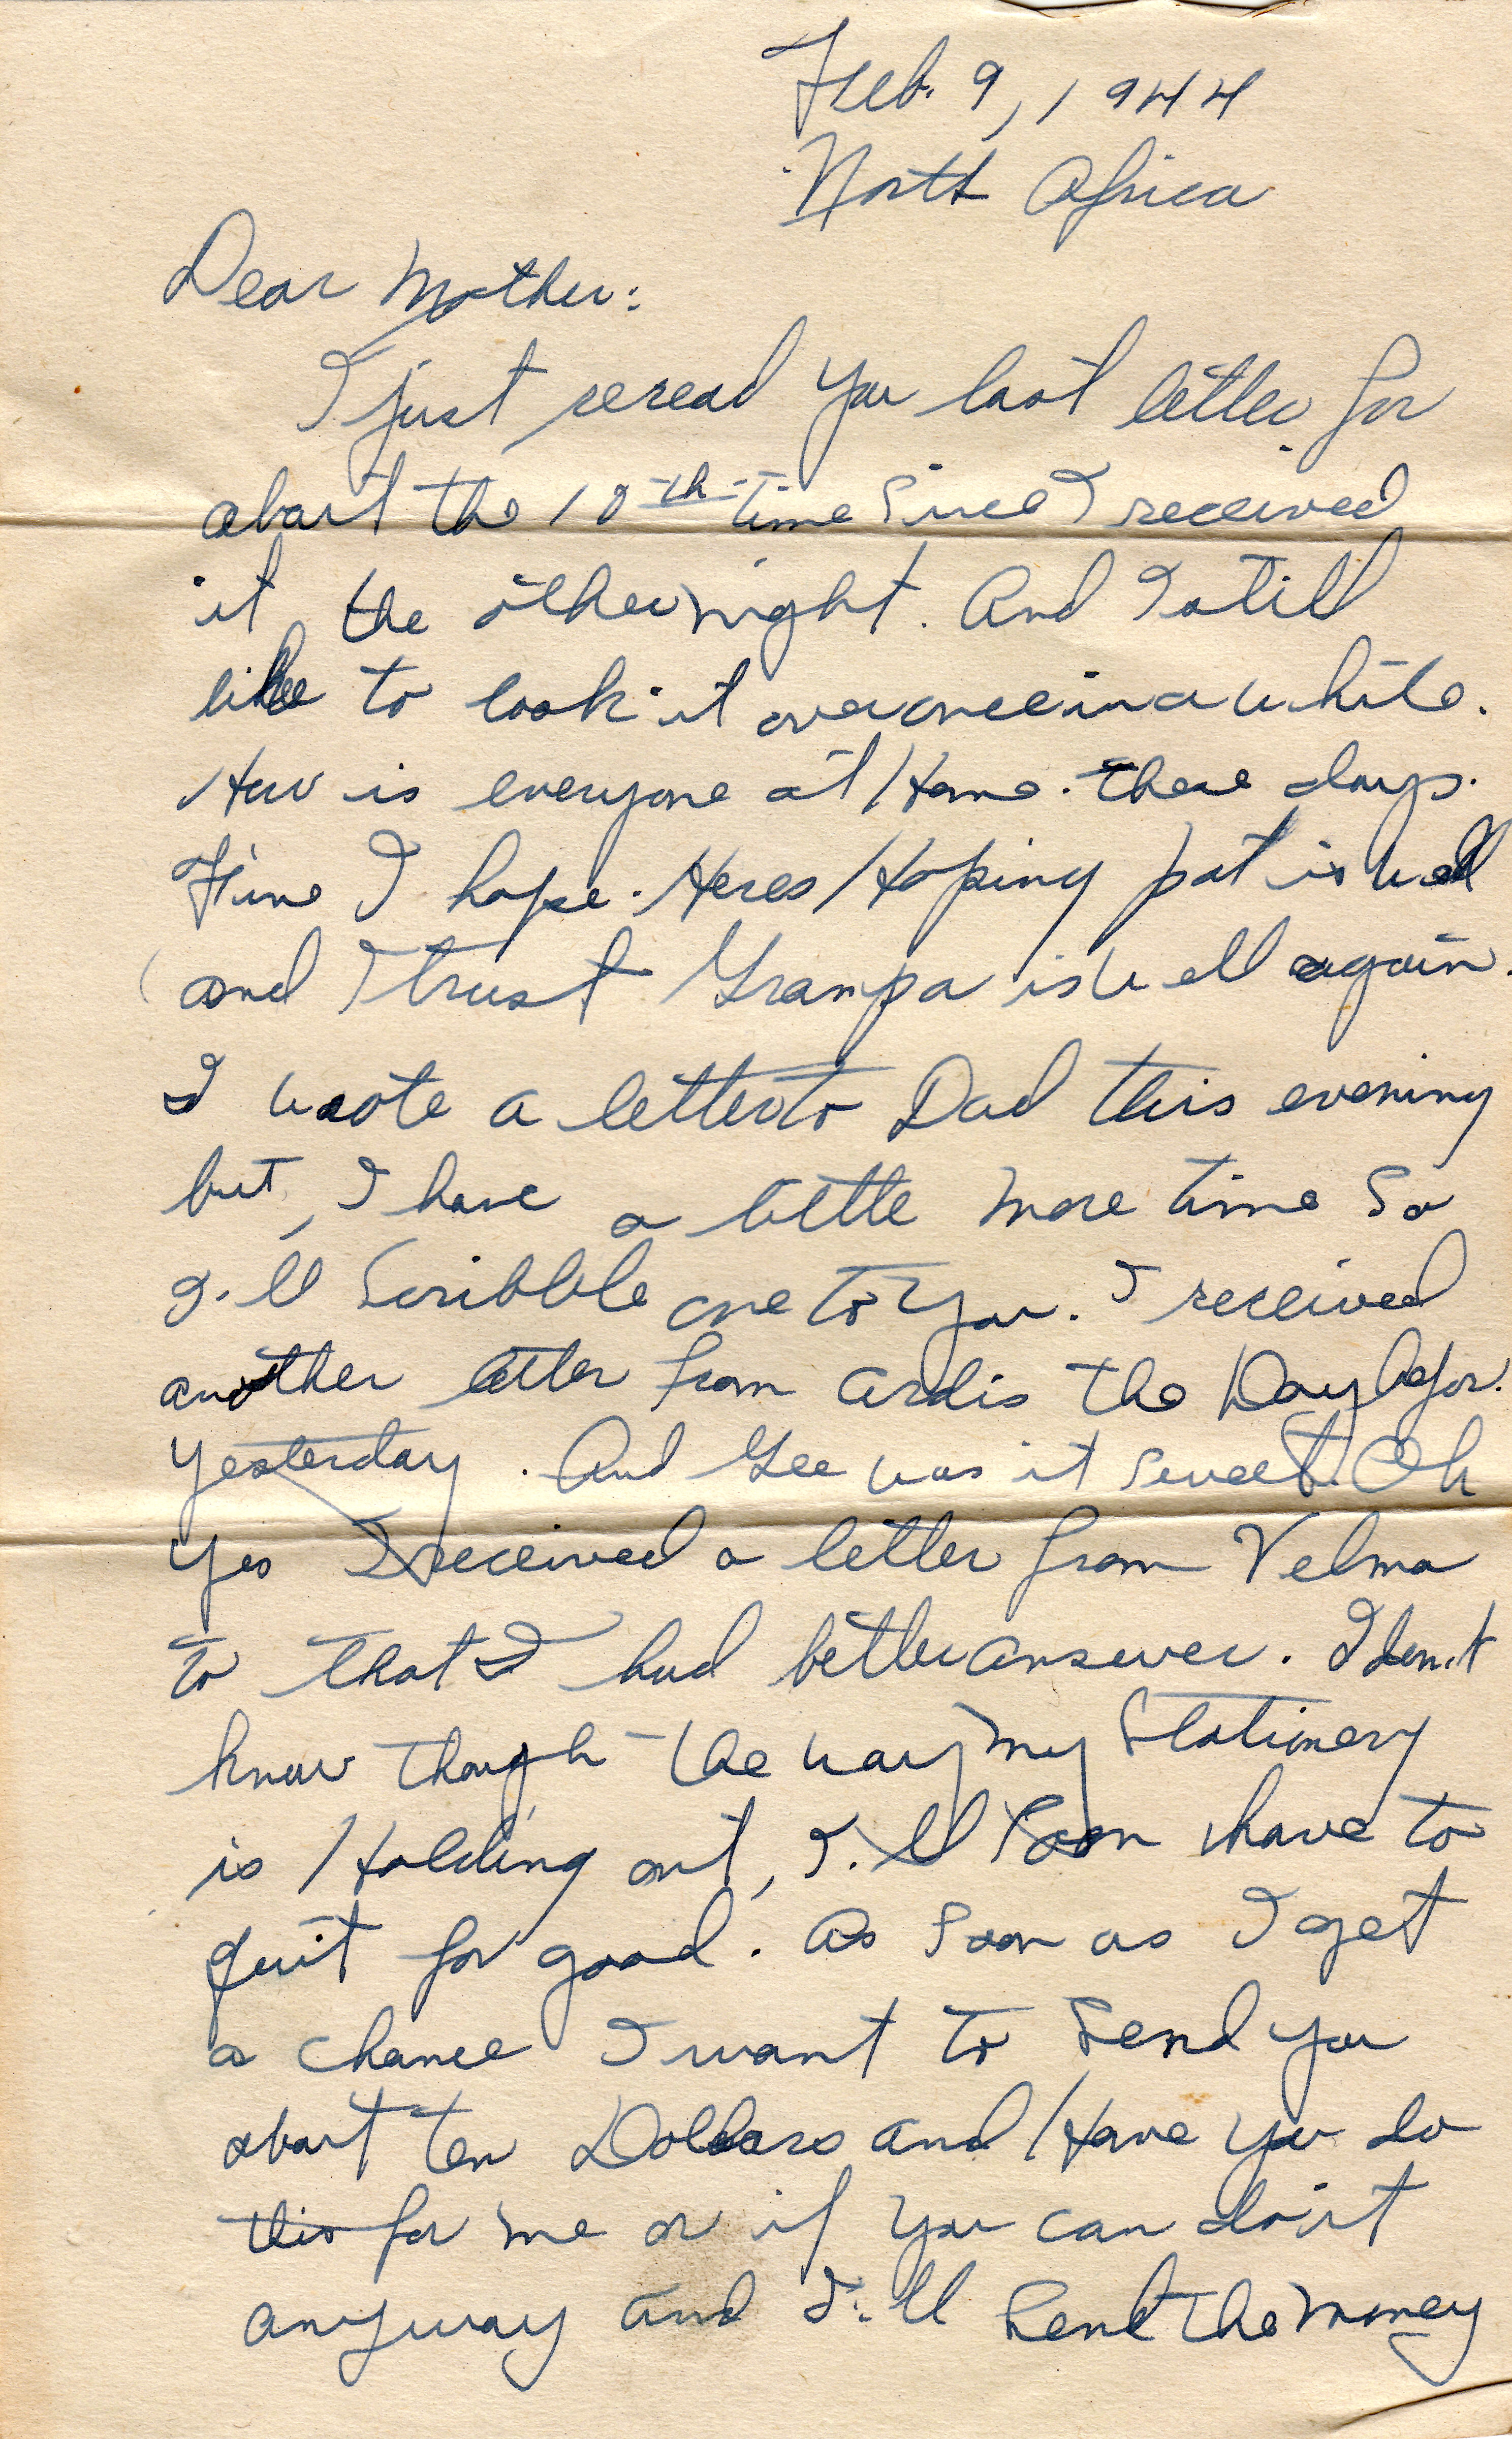 Feb. 9, 1944
North Africa
Dear Mother:
I just reread you last letter for
about the 10th time Since I received
it the other night. And I still
like to look it over once in a while.
How is everyone at Home. these days.
Fine I hope. Heres Hoping pat is well
and I trust Grampa is well again.
I wrote a letter to Dad this evening
but, I have a little more time So
I'll Scribble one to You. I received
another letter from Ardis the Day befor.
yesterday. And Gee was it sweet. Oh
yes I received a letter from Velma
to that I had better answer. I don't
know though the way my Stationery
is Holding out, I'll Soon have to
quit for good. As Soon as I get
a chance I want to Send you
about ten Dollars and Have you do
this for me or if you can do it
anyway and I'll Send the money